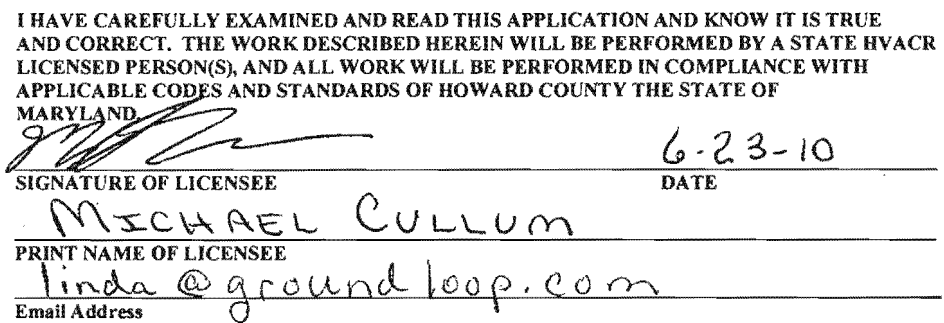 I HAVE CAREFULLY EXAMINED AND READ THIS APPLICATION AND KNOW IT IS TRUE
AND CORRECT. THE WORK DESCRIBED HEREIN WILL BE PERFORMED BY A STATE HVACR
LICENSED PERSON(S), AND ALL WORK WILL BE PERFORMED IN COMPLIANCE WITH
APPLICABLE CODES AND STANDARDS OF HOWARD COUNTY THE STATE OF
MARYLAND.
6-23-10
SIGNATURE OF LICENSEE DATE
MICHAEL CULLUM
PRINT NAME OF LICENSEE
linda@groundloop.com
Email Address